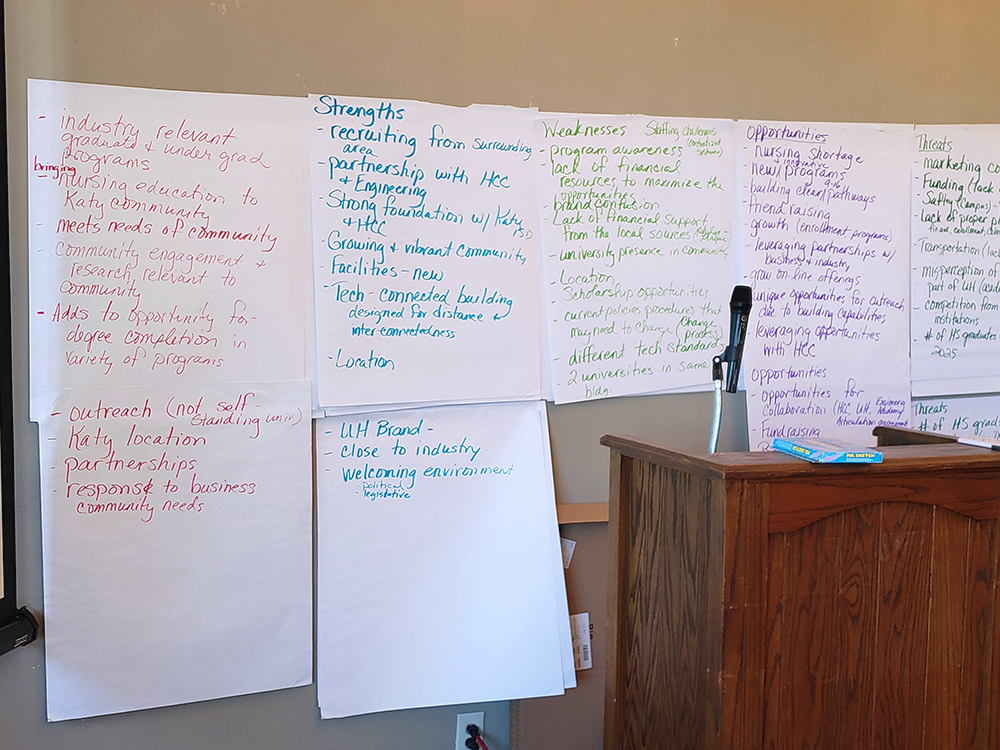 - industry relevant
graduate & under grad
programs
bringing
- nursing education to
Katy community
- meets needs of community
- community engagement &
research relevant to
community
- Adds to opportunity for
degree completion in
variety of programs
- outreach (not self-
standing univ)
- Katy location
- partnerships
- response to business
community needs
Strengths
- recruiting from surrounding
area
- partnership with HCC
& Engineering
- Strong foundation w/ Katy
ISD
& HCC
- Growing & vibrant community
- Facilities - new
- Tech - connected building
designed for distance &
inter-connectedness
- Location
- UH Brand -
- close to industry
- welcoming environment
- political
- legislative
Weaknesses
Staffing challenges
(centralized
systems)
- program awareness
- lack of financial
resources to maximize the
opportunities
- brand confusion
- Lack of financial support
from the local sources
- university presence in community
- Location
- Scholarship opportunities
- current policies/procedures that
may need to change (change
process)
- different tech standards
- 2 universities in same
bldg.
Opportunities
- nursing shortage
innovative
- new programs
9-16
- building clear pathways
- friend raising
- growth (enrollment, programs)
- leveraging partnerships w/
business & industry
- grow on-line offerings
- unique opportunities for outreach
due to building capabilities
- leveraging opportunities
with HCC
Opportunities
- opportunities for
collaboration (HCC, UH, Engineering
Academy
Articulation agreements
- Fundraising
Threats
- marketing
- Funding (lack
- Safety (campus) -
- lack of proper
- Transportation (lack
- misperception of
part of UH
- competition from
institutions
- # of HS graduates
2025
Threats
- # of HS grads
MR. SKETCH